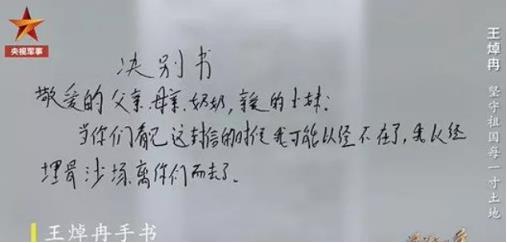 央视军事
决别书
敬爱的父亲.母亲.奶奶,亲爱的小妹:
当你们看见这封信的时候我可能以经不在了,我以经
埋骨沙场离你们而去了。
王焯冉手书
王焯冉 坚守祖国每一寸土地